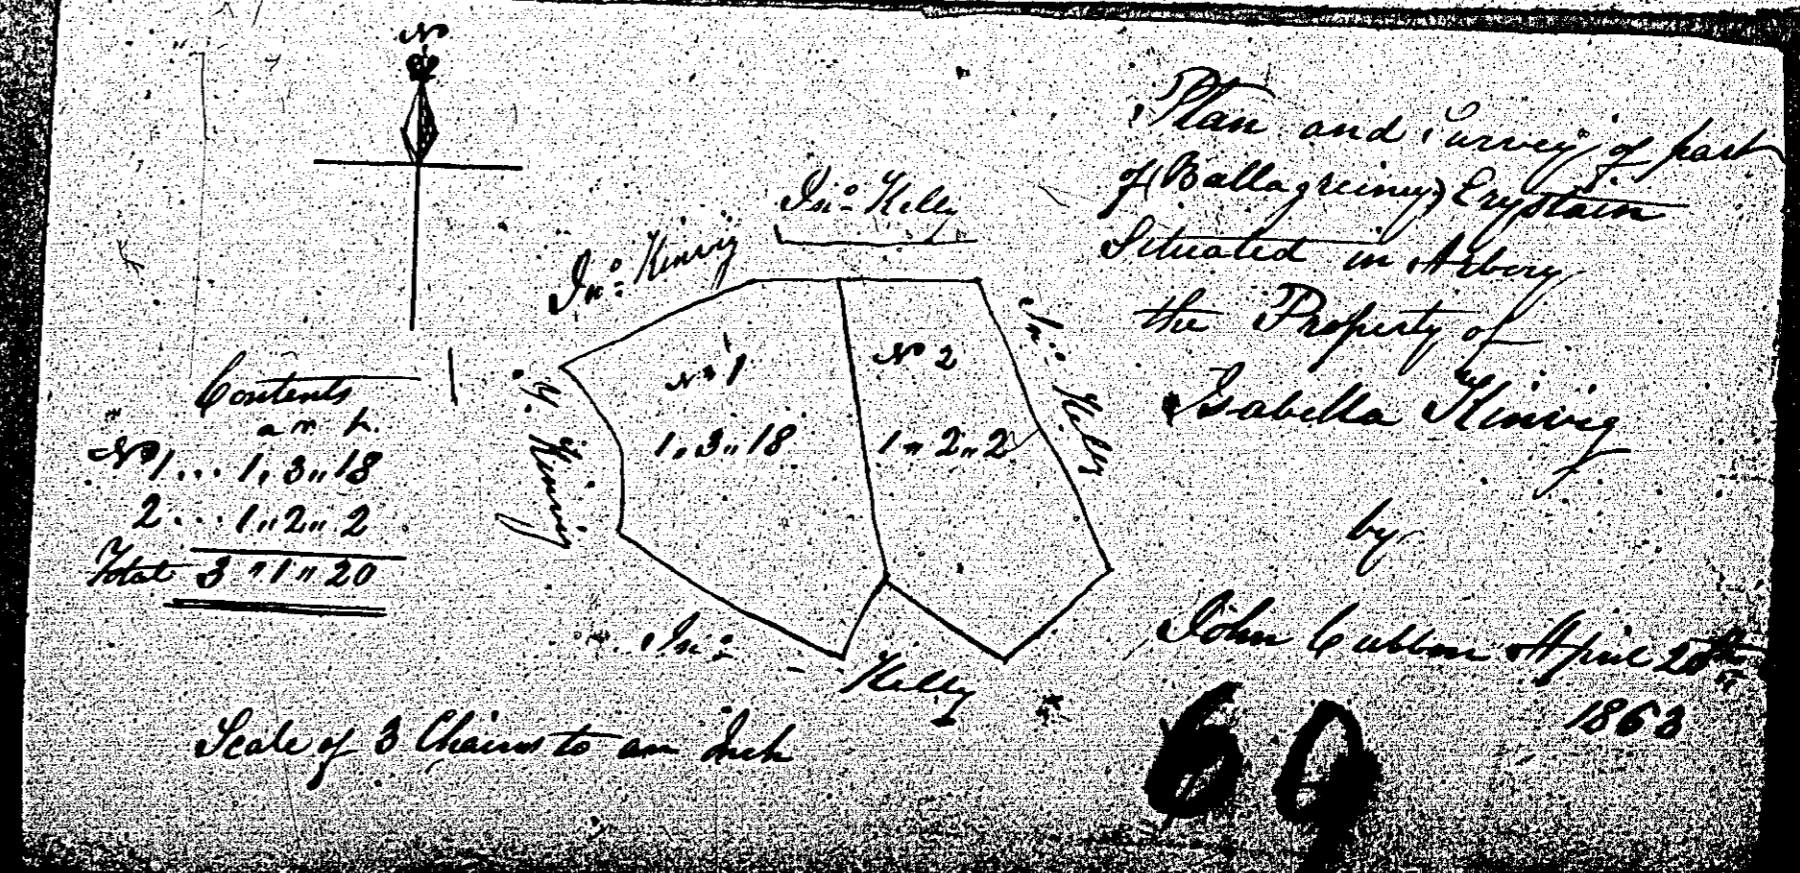 N
Plan and Survey of part
of (Ballagreiney) Crystain
Situated in Arbory
the Property of
Isabella Kinvig
by
John Cubbon April 20th
1863
69
Jno. Kelly
Jno. Kinvig
Jno. Kelly
Kinvig
Jno. Kelly
No 1
1 " 3 " 18
No 2
1 " 2 " 2
Contents
a r p.
No 1 ... 1 , 3 " 18
2 ... 1 " 2 " 2
Total 3 " 1 " 20
Scale of 3 Chains to an Inch